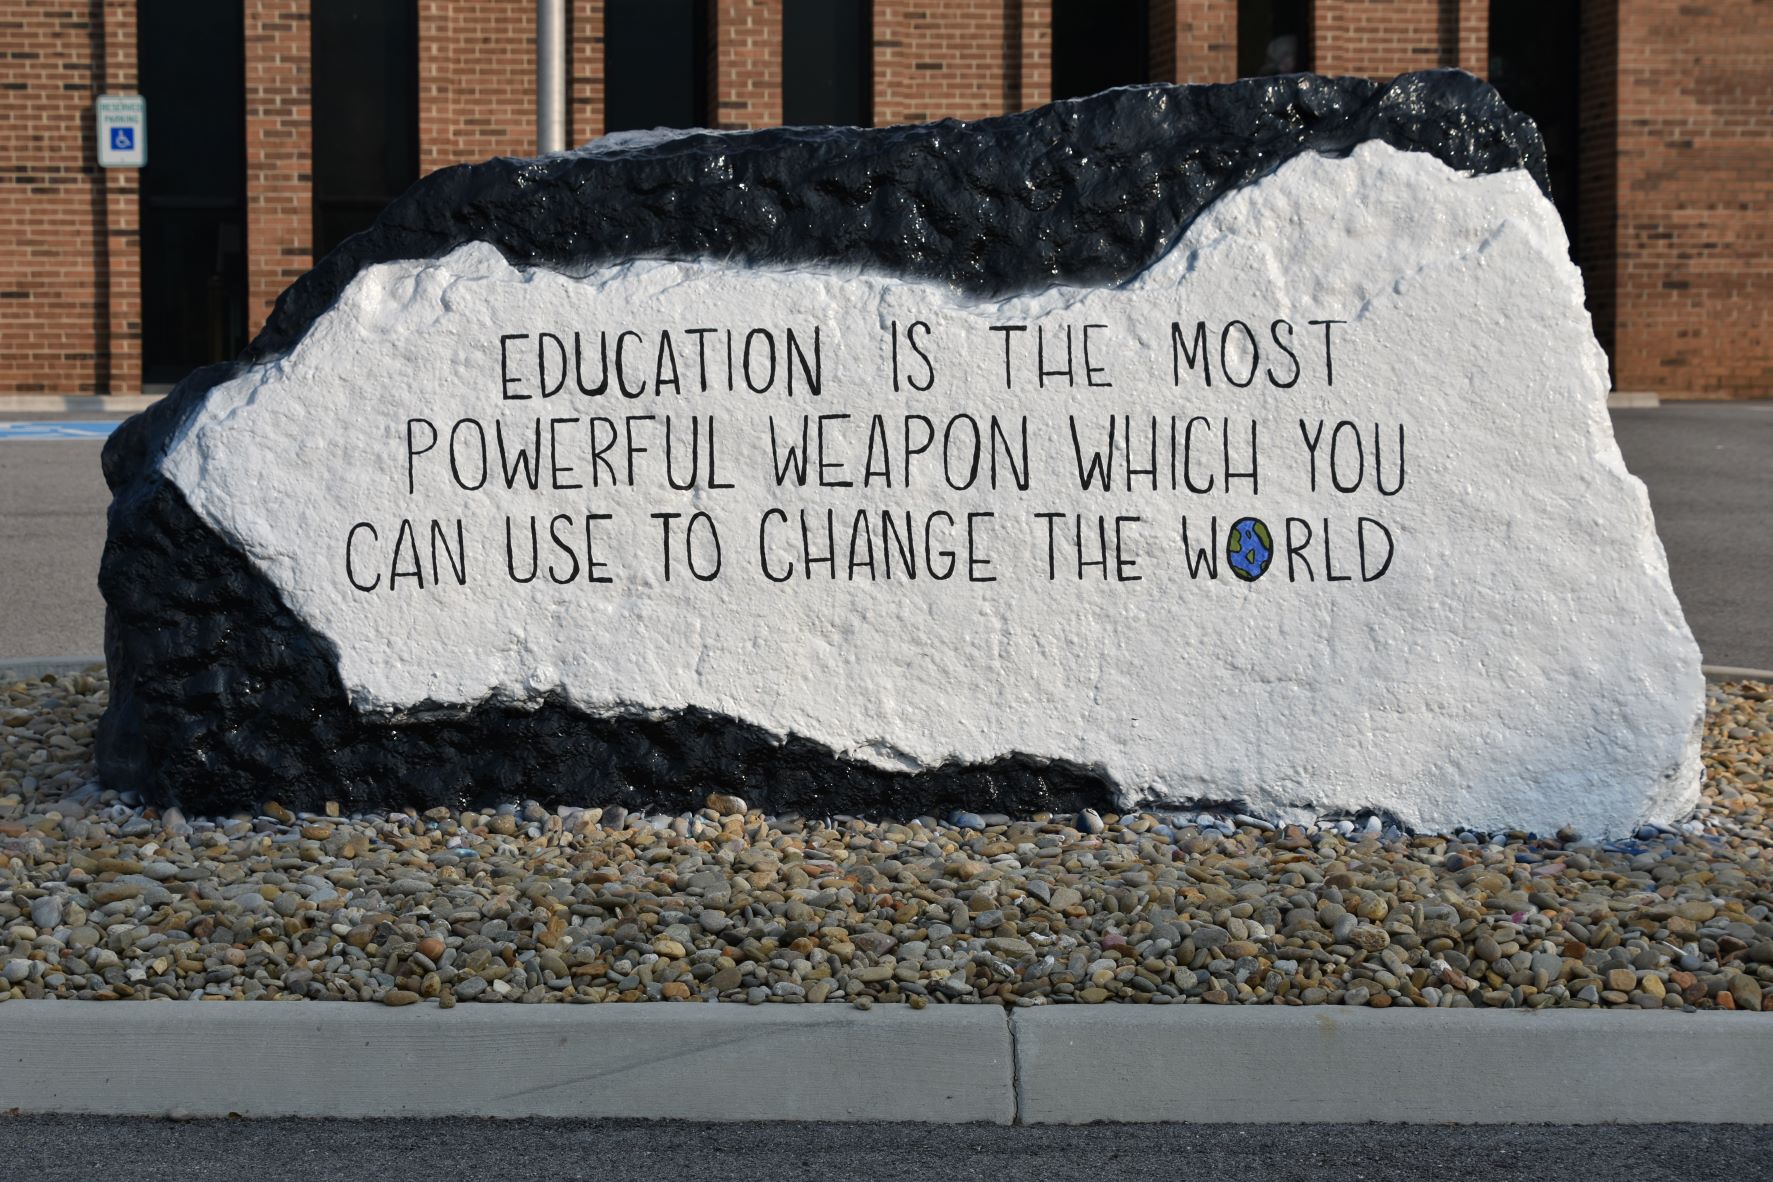 RESERVED
PARKING
EDUCATION IS THE MOST
POWERFUL WEAPON WHICH YOU
CAN USE TO CHANGE THE WORLD